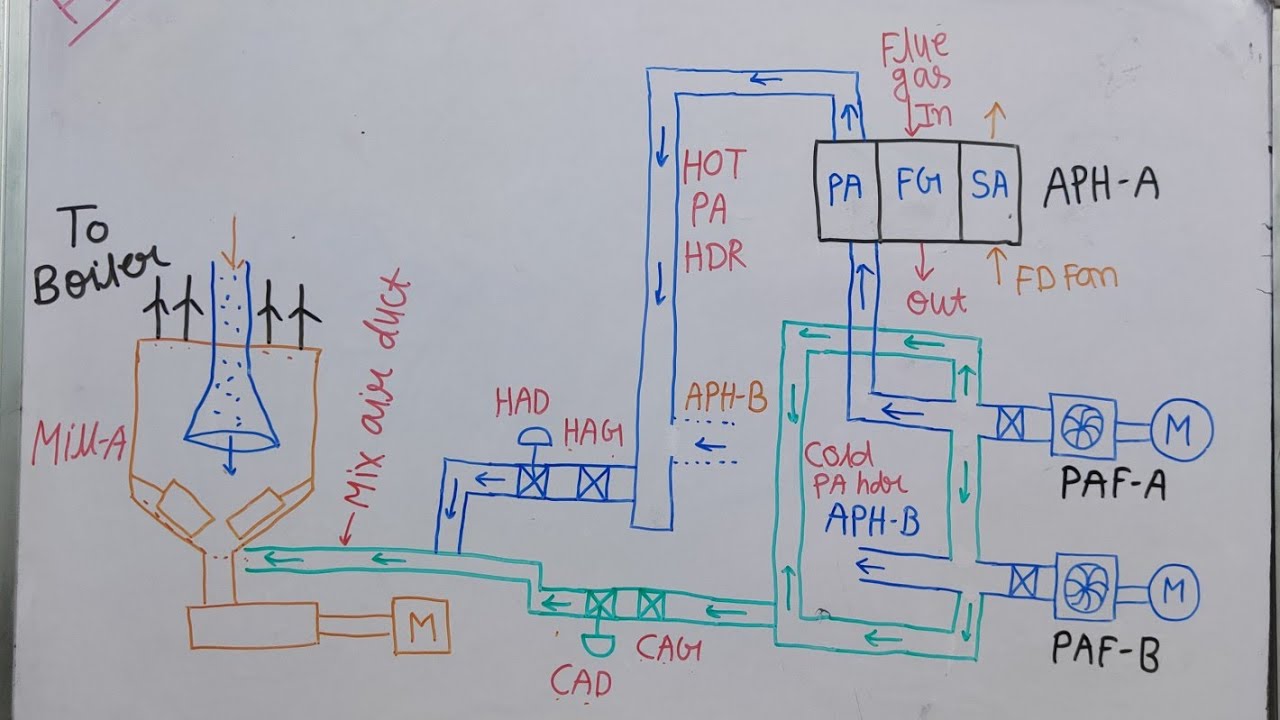 Flue
gas
In
PA
FG
SA
APH-A
HOT
PA
HDR
To
Boiler
FD Fan
out
Mix air duct
HAD
HAG
APH-B
Mill-A
M
PAF-A
Cold
PA hdr
APH-B
M
PAF-B
M
CAG
CAD